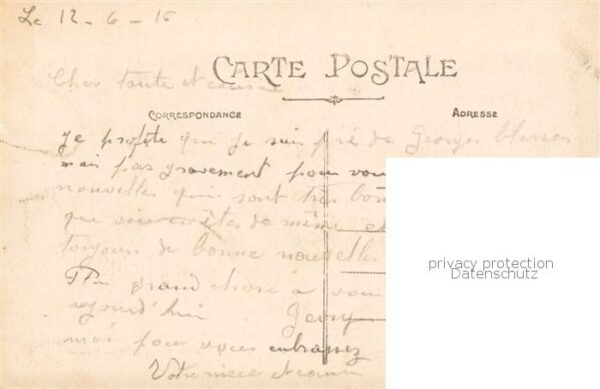 Le 12-6-15
CARTE POSTALE
Cher tante et cousine
CORRESPONDANCE
ADRESSE
Je profite que je suis près de Georges blesser
mais pas gravement pour vous
nouvelles qui sont très bonnes
que vous êtes de même et
toujours de bonne nouvelles
grand chose a vous
aujourd'hui Georges
moi pour vous embrassez
Votre niece et cousine
privacy protection
Datenschutz